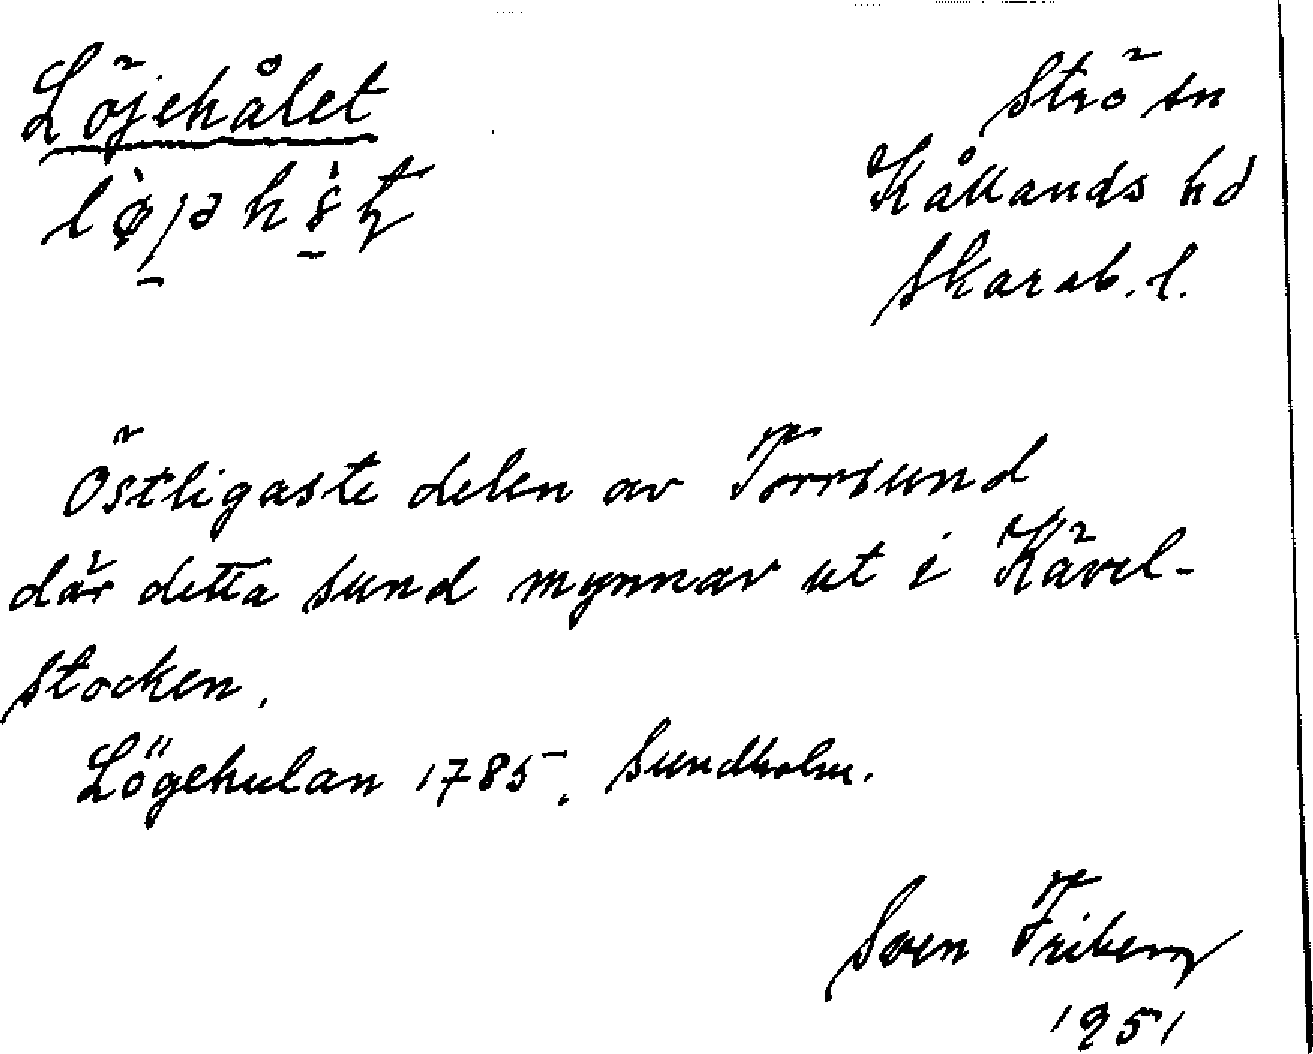 Löjehålet
Strö sn
Kållands hd
Skarab. l.
Östligaste delen av Torrsund
där detta sund mynnar ut i Kävel-
stocken.
Lögehulan 1785. Sundholm.
Sven Friberg
1951